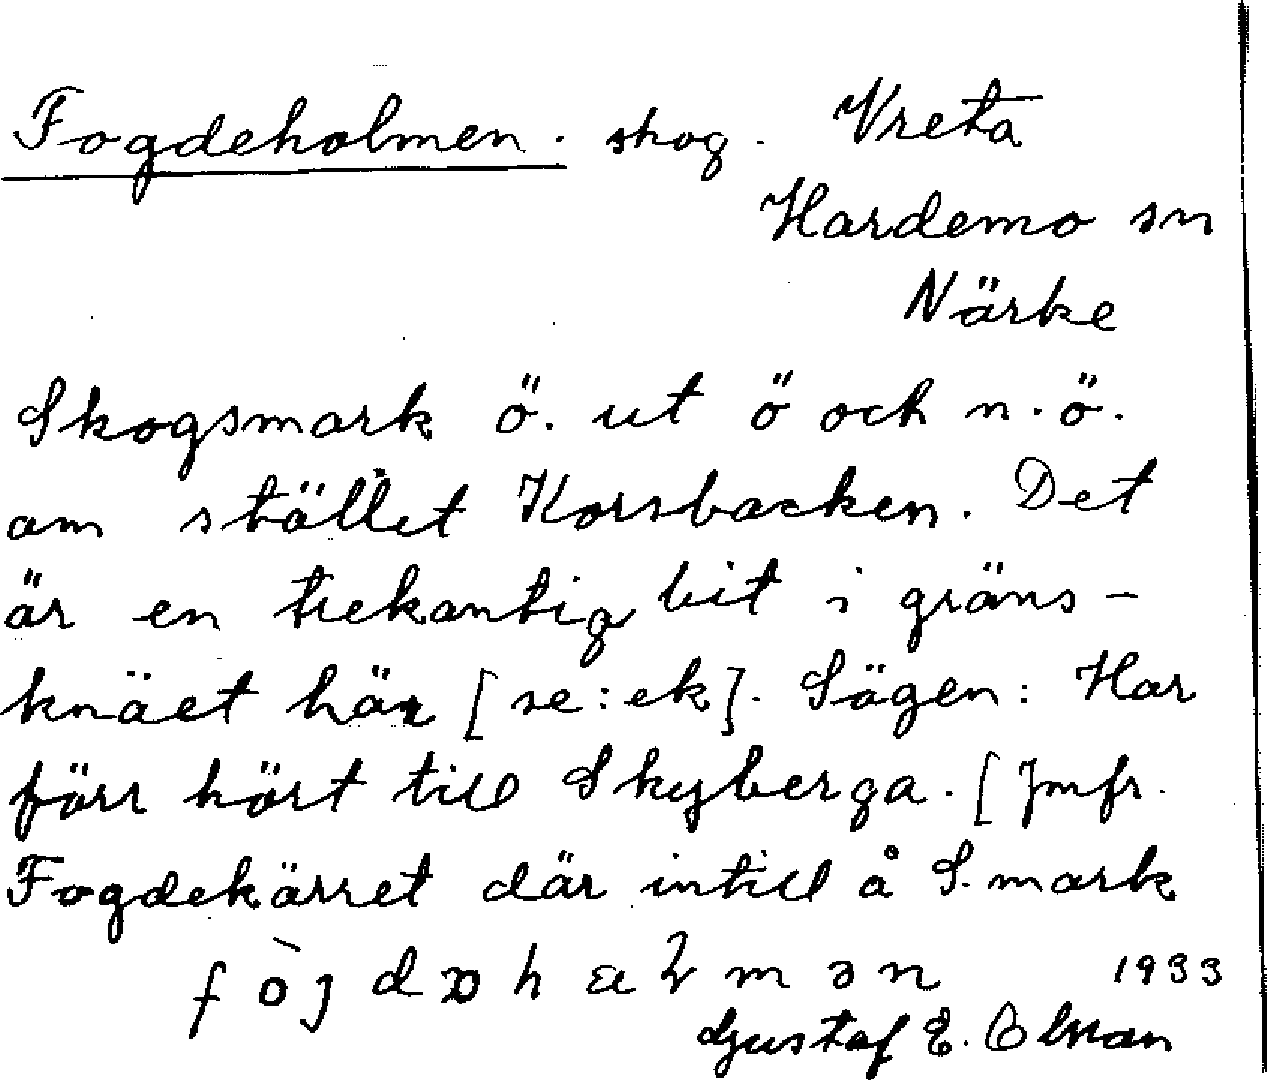 Fogdeholmen. skog. Vreta
Hardemo sn
Närke
Skogsmark ö. ut ö och n.ö.
om stället Korsbacken. Det
är en trekantig bit i gräns-
knäet här [se: ek]. Sägen: Har
förr hört till Skyberga. [Jmfr.
Fogdekärret där intill å S. mark
1933
Gustaf E. Olsson